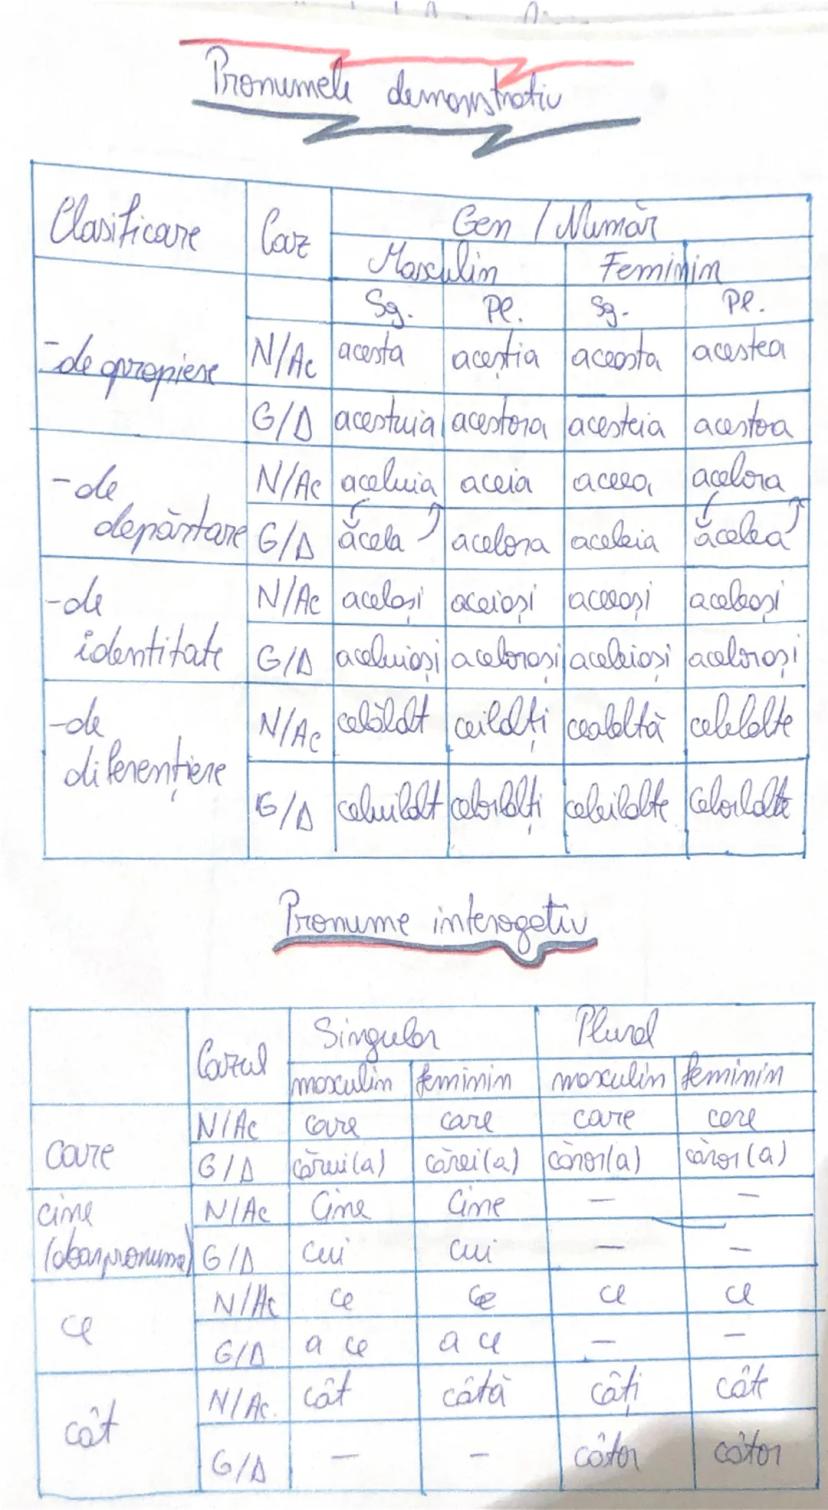 Pronumele demonstrativ
Clasificare Caz Gen / Număr
Masculin Feminin
Sg. Pl. Sg. Pl.
-de apropiere N/Ac acesta aceștia aceasta acestea
G/D acestuia acestora acesteia acestora
-de depărtare N/Ac aceluia aceia aceea acelora
G/D ăcela acelora aceleia ăcelea
-de identitate N/Ac același aceiași aceeași aceleași
G/D aceluiași acelorași aceleiași acelorași
-de diferențiere N/Ac celălalt ceilalți cealaltă celelalte
G/D celuilalt celorlalți celeilalte celorlalte
Pronume interogativ
Cazul Singular Plural
masculin feminin masculin feminin
care N/Ac care care care care
G/D cărui(a) cărei(a) căror(a) căror(a)
cine (doar pronume) N/Ac Cine Cine — —
G/D cui cui — —
ce N/Ac ce ce ce ce
G/D a ce a ce — —
cât N/Ac. cât câtă câți câte
G/D — — câtor câtor